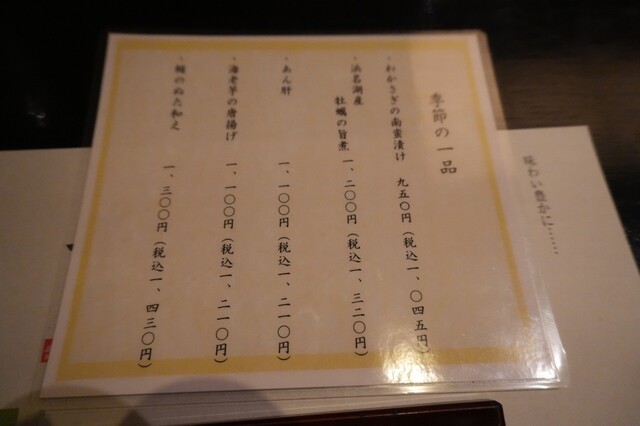 季節の一品
・わかさぎの南蛮漬け 九五〇円(税込一、〇四五円)
・浜名湖産
牡蠣の旨煮 一、二〇〇円(税込一、三二〇円)
・あん肝 一、一〇〇円(税込一、二一〇円)
・海老芋の唐揚げ 一、一〇〇円(税込一、二一〇円)
・鰻のぬた和え 一、三〇〇円(税込一、四三〇円)
味わい豊かに……